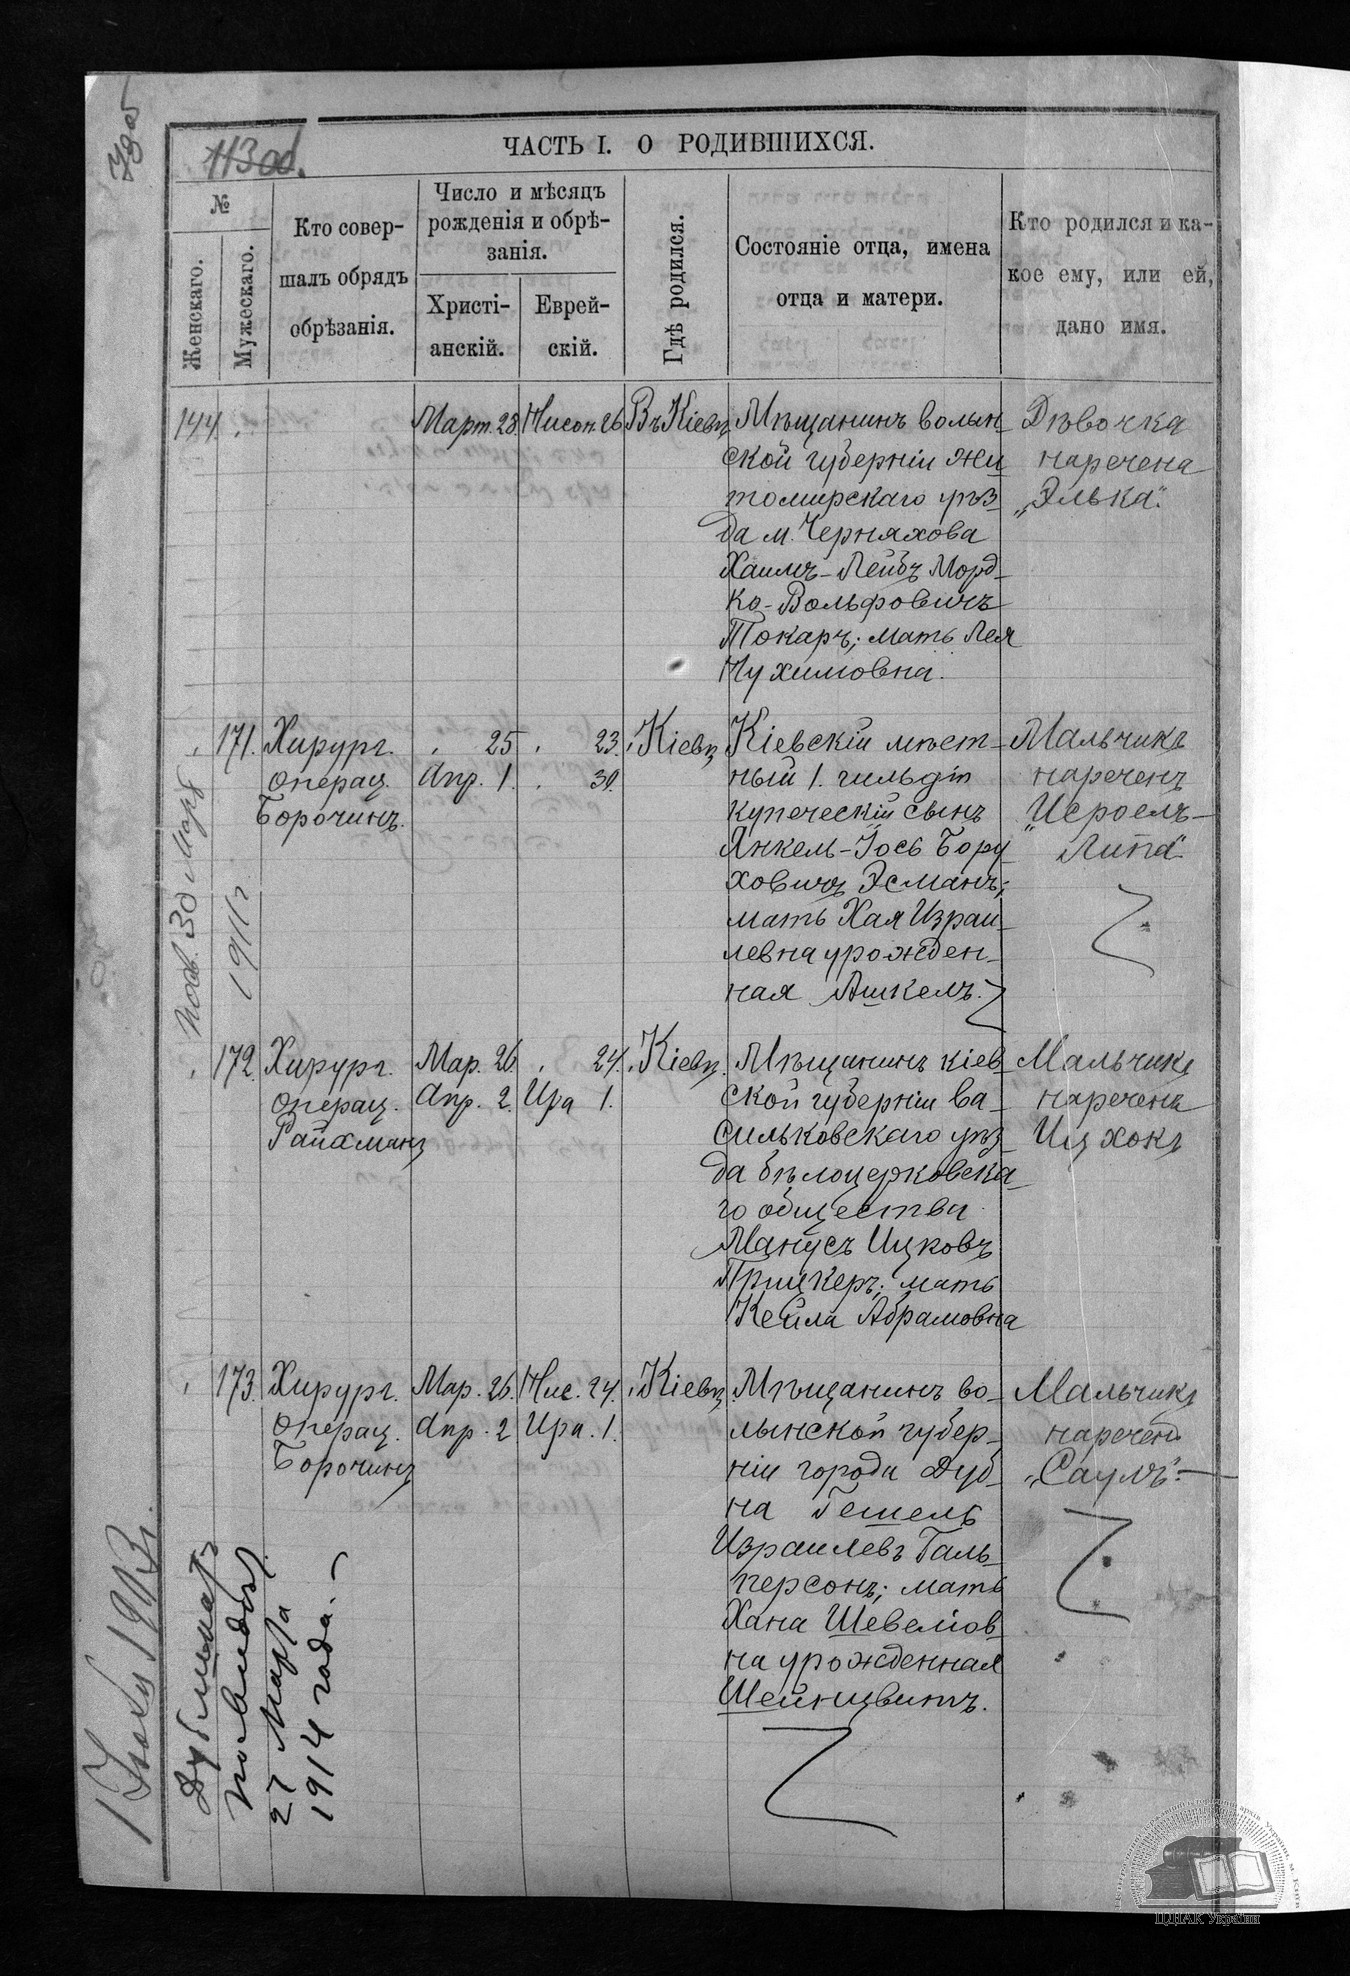 113 об.
ЧАСТЬ I. О РОДИВШИХСЯ.
№
Женскаго.
Мужескаго.
Кто совер-
шалъ обрядъ
обрѣзанія.
Число и мѣсяцъ
рожденія и обрѣ-
занія.
Христі-
анскій.
Еврей-
скій.
Гдѣ родился.
Состояніе отца, имена
отца и матери.
Кто родился и ка-
кое ему, или ей,
дано имя.
144.
Март. 28.
Нисон. 26
Въ Кіевѣ
Мѣщанинъ волын-
ской губерніи жи-
томирскаго уѣз-
да м. Черняхова
Хаимъ-Лейбъ Морд-
ко-Вольфовичъ
Токарь; мать Лея
Нухимовна.
Дѣвочка
наречена
„Элька".
171.
Хирург.
операц.
Борочинъ.
„ 25
Апр. 1.
„ 23.
„ 30.
Кіевѣ
Кіевскій мѣст-
ный 1. гильдіи
купеческій сынъ
Янкель-Іось Бору-
ховичъ Эсманъ;
мать Хая Израи-
левна урожден-
ная Ашкель.
Мальчикъ
нареченъ
„Исроель-
Липа".
30 Марта
1911 г
172.
Хирург.
операц.
Райхманъ
Мар. 26.
Апр. 2.
„ 24.
Ира 1.
Кіевѣ.
Мѣщанинъ кіев-
ской губерніи ва-
сильковскаго уѣз-
да бѣлоцерковска-
го общества
Манусъ Ицковъ
Прицкеръ; мать
Кейла Абрамовна
Мальчикъ
нареченъ
Ицхокъ
173.
Хирург.
операц.
Борочинъ
Мар. 26.
Апр. 2
Нис. 24.
Ира. 1.
Кіевѣ.
Мѣщанинъ во-
лынской губер-
ніи города Дуб-
на Гешель
Израилевъ Галь-
персонъ; мать
Хана Шевеліов-
на урожденная
Шейнцвитъ.
Мальчикъ
нареченъ
„Саулъ".
27 Марта
1914 года.
ЦДІАК України